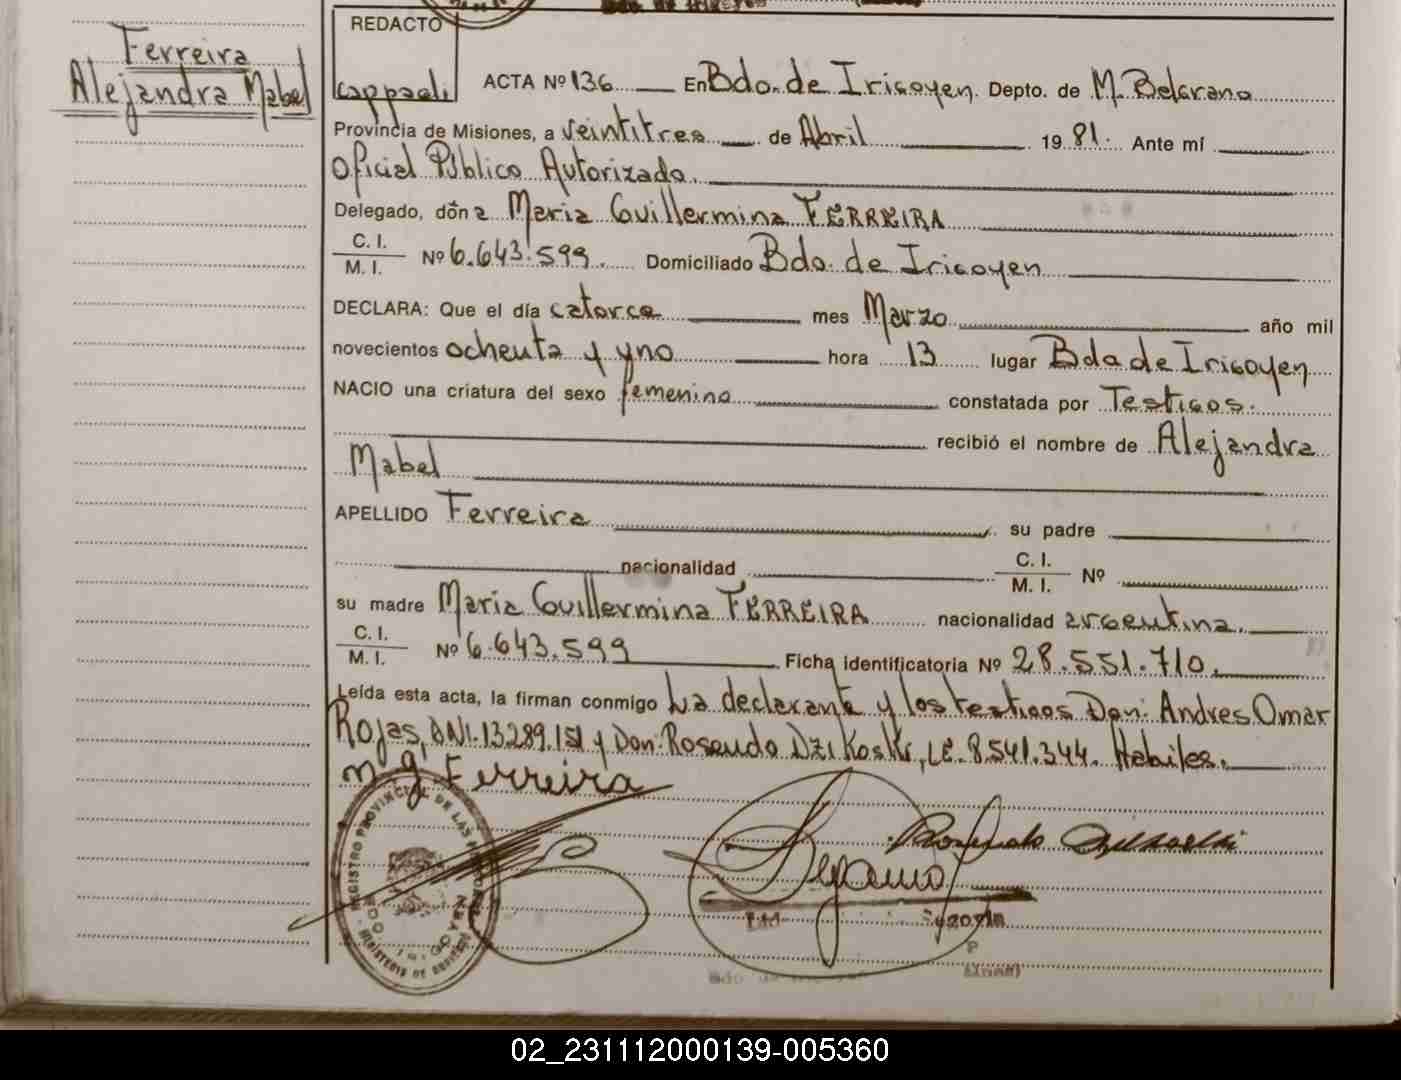 Ferreira
Alejandra Mabel
REDACTO
Cappaeli
ACTA Nº 136 En Bdo. de Irigoyen. Depto. de M. Belgrano
Provincia de Misiones, a veintitres de Abril 1981. Ante mí
Oficial Público Autorizado.
Delegado, doña Maria Guillermina FERREIRA
C. I.
M. I.
Nº 6.643.599. Domiciliado Bdo. de Irigoyen
DECLARA: Que el día catorce mes Marzo año mil
novecientos ochenta y uno hora 13 lugar Bdo de Irigoyen
NACIO una criatura del sexo femenino constatada por Testigos.
recibió el nombre de Alejandra
Mabel
APELLIDO Ferreira su padre
nacionalidad C. I.
M. I. Nº
su madre Maria Guillermina FERREIRA nacionalidad argentina.
C. I.
M. I.
Nº 6.643.599 Ficha identificatoria Nº 28.551.710.
Leída esta acta, la firman conmigo La declarante y los testigos Don: Andres Omar
Rojas, DNI. 13289.151 y Don: Rosendo Dzikoski, LE. 8.541.344. Habiles.
m g Ferreira
REGISTRO PROVINCIAL DE LAS PERSONAS
Rosendo
02_231112000139-005360